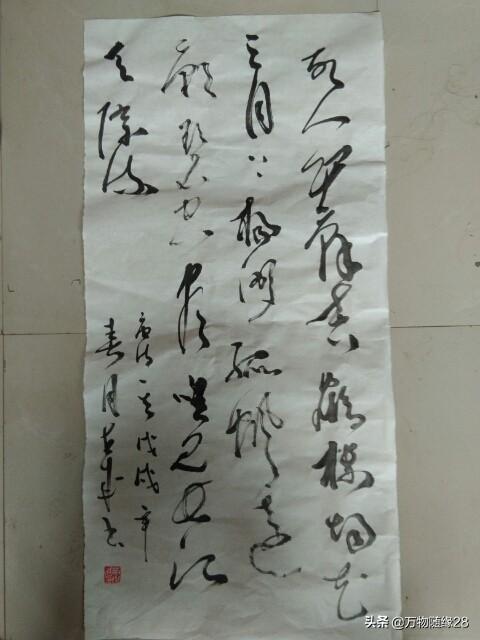 故人西辞黄鹤楼烟花
三月下扬州孤帆远
影碧空尽唯见长江
天际流
唐诗一首戊戌年
春月书
头条 @万物随缘28